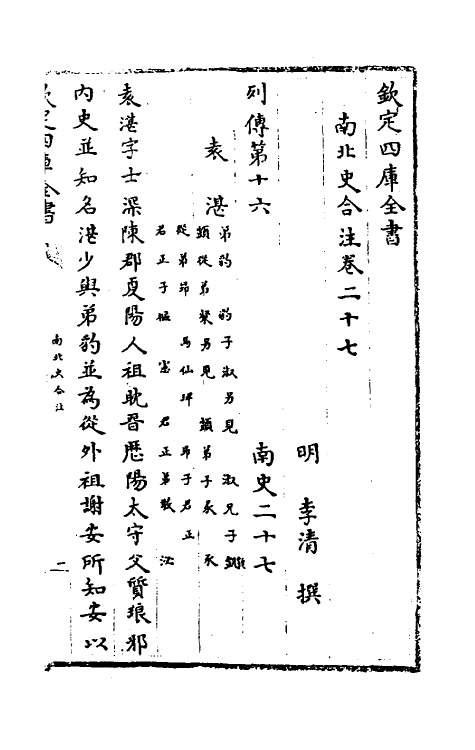 欽定四庫全書
南北史合注卷二十七
明 李清 撰
列傳第十六 南史二十七
袁湛 弟豹 豹子淑另見 淑兄子顗
顗從弟粲另見 顗弟子彖
從弟昂 馬仙琕 昂子君正
君正子樞 憲 君正弟敬 泌
袁湛字士深陳郡夏陽人祖耽晉歷陽太守父質琅邪
內史並知名湛少與弟豹並為從外祖謝安所知安以
欽定四庫全書
南北史合注